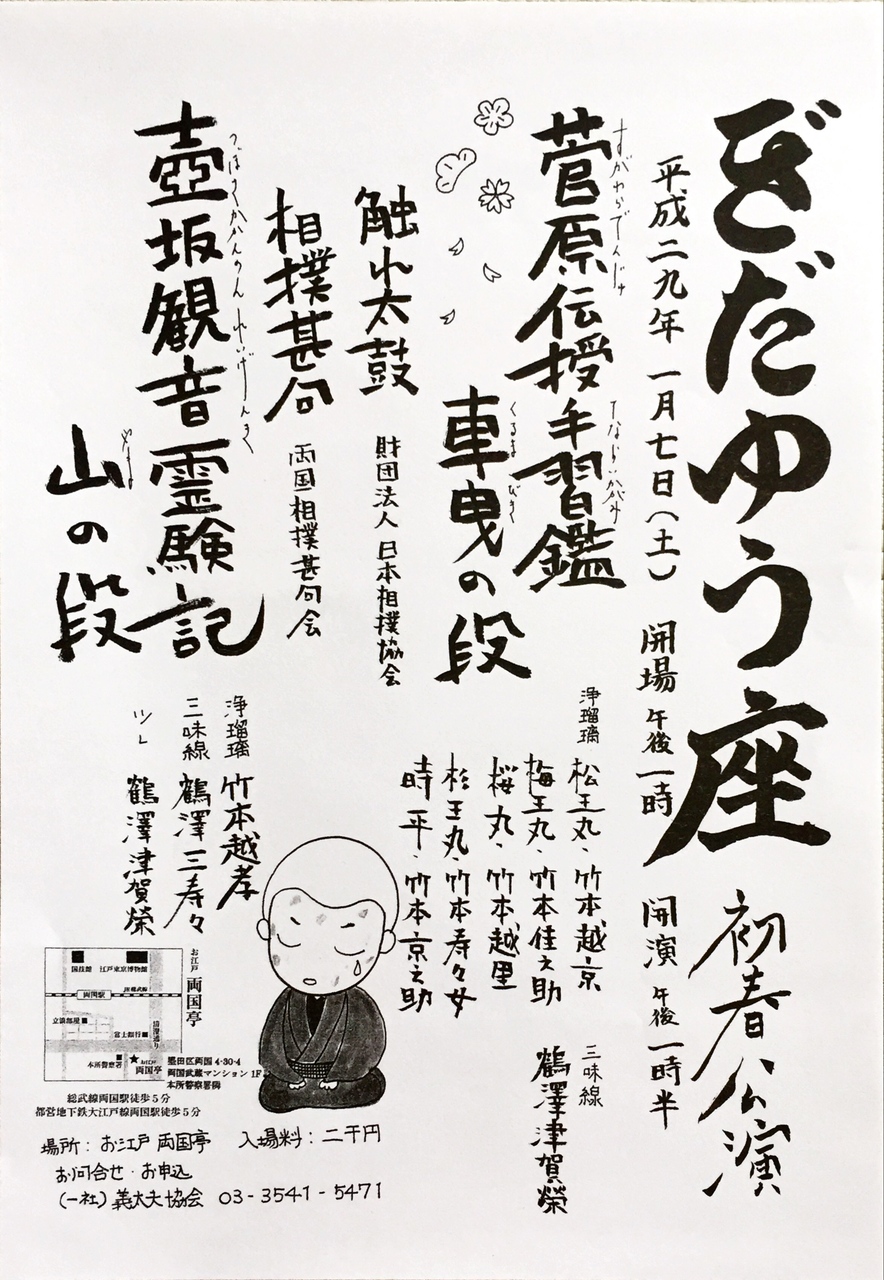 ぎだゆう座
初春公演
平成二九年 一月七日(土) 開場 午後一時
開演 午後一時半
すがわらでんじゅ
てならいかがみ
菅原伝授手習鑑
くるま びき
車曳の段
浄瑠璃
松王丸、竹本越京
梅王丸、竹本佳之助
桜丸、竹本越里
杉王丸、竹本寿々女
時平、竹本京之助
三味線
鶴澤津賀榮
触れ太鼓
財団法人 日本相撲協会
相撲甚句
両国相撲甚句会
つぼさかかんのん れいげんき
壺坂観音霊験記
やま
山の段
浄瑠璃 竹本越孝
三味線 鶴澤三寿々
ツレ 鶴澤津賀榮
お江戸 両国亭
国技館 江戸東京博物館
JR総武線
両国駅
立浪部屋
富士銀行
清澄通り
本所警察署
お江戸
両国亭
墨田区両国 4-30-4
両国武蔵マンション 1F
本所警察署隣
総武線両国駅徒歩5分
都営地下鉄大江戸線両国駅徒歩5分
場所:お江戸 両国亭 入場料:二千円
お問合せ・お申込
(一社)義太夫協会 03-3541-5471